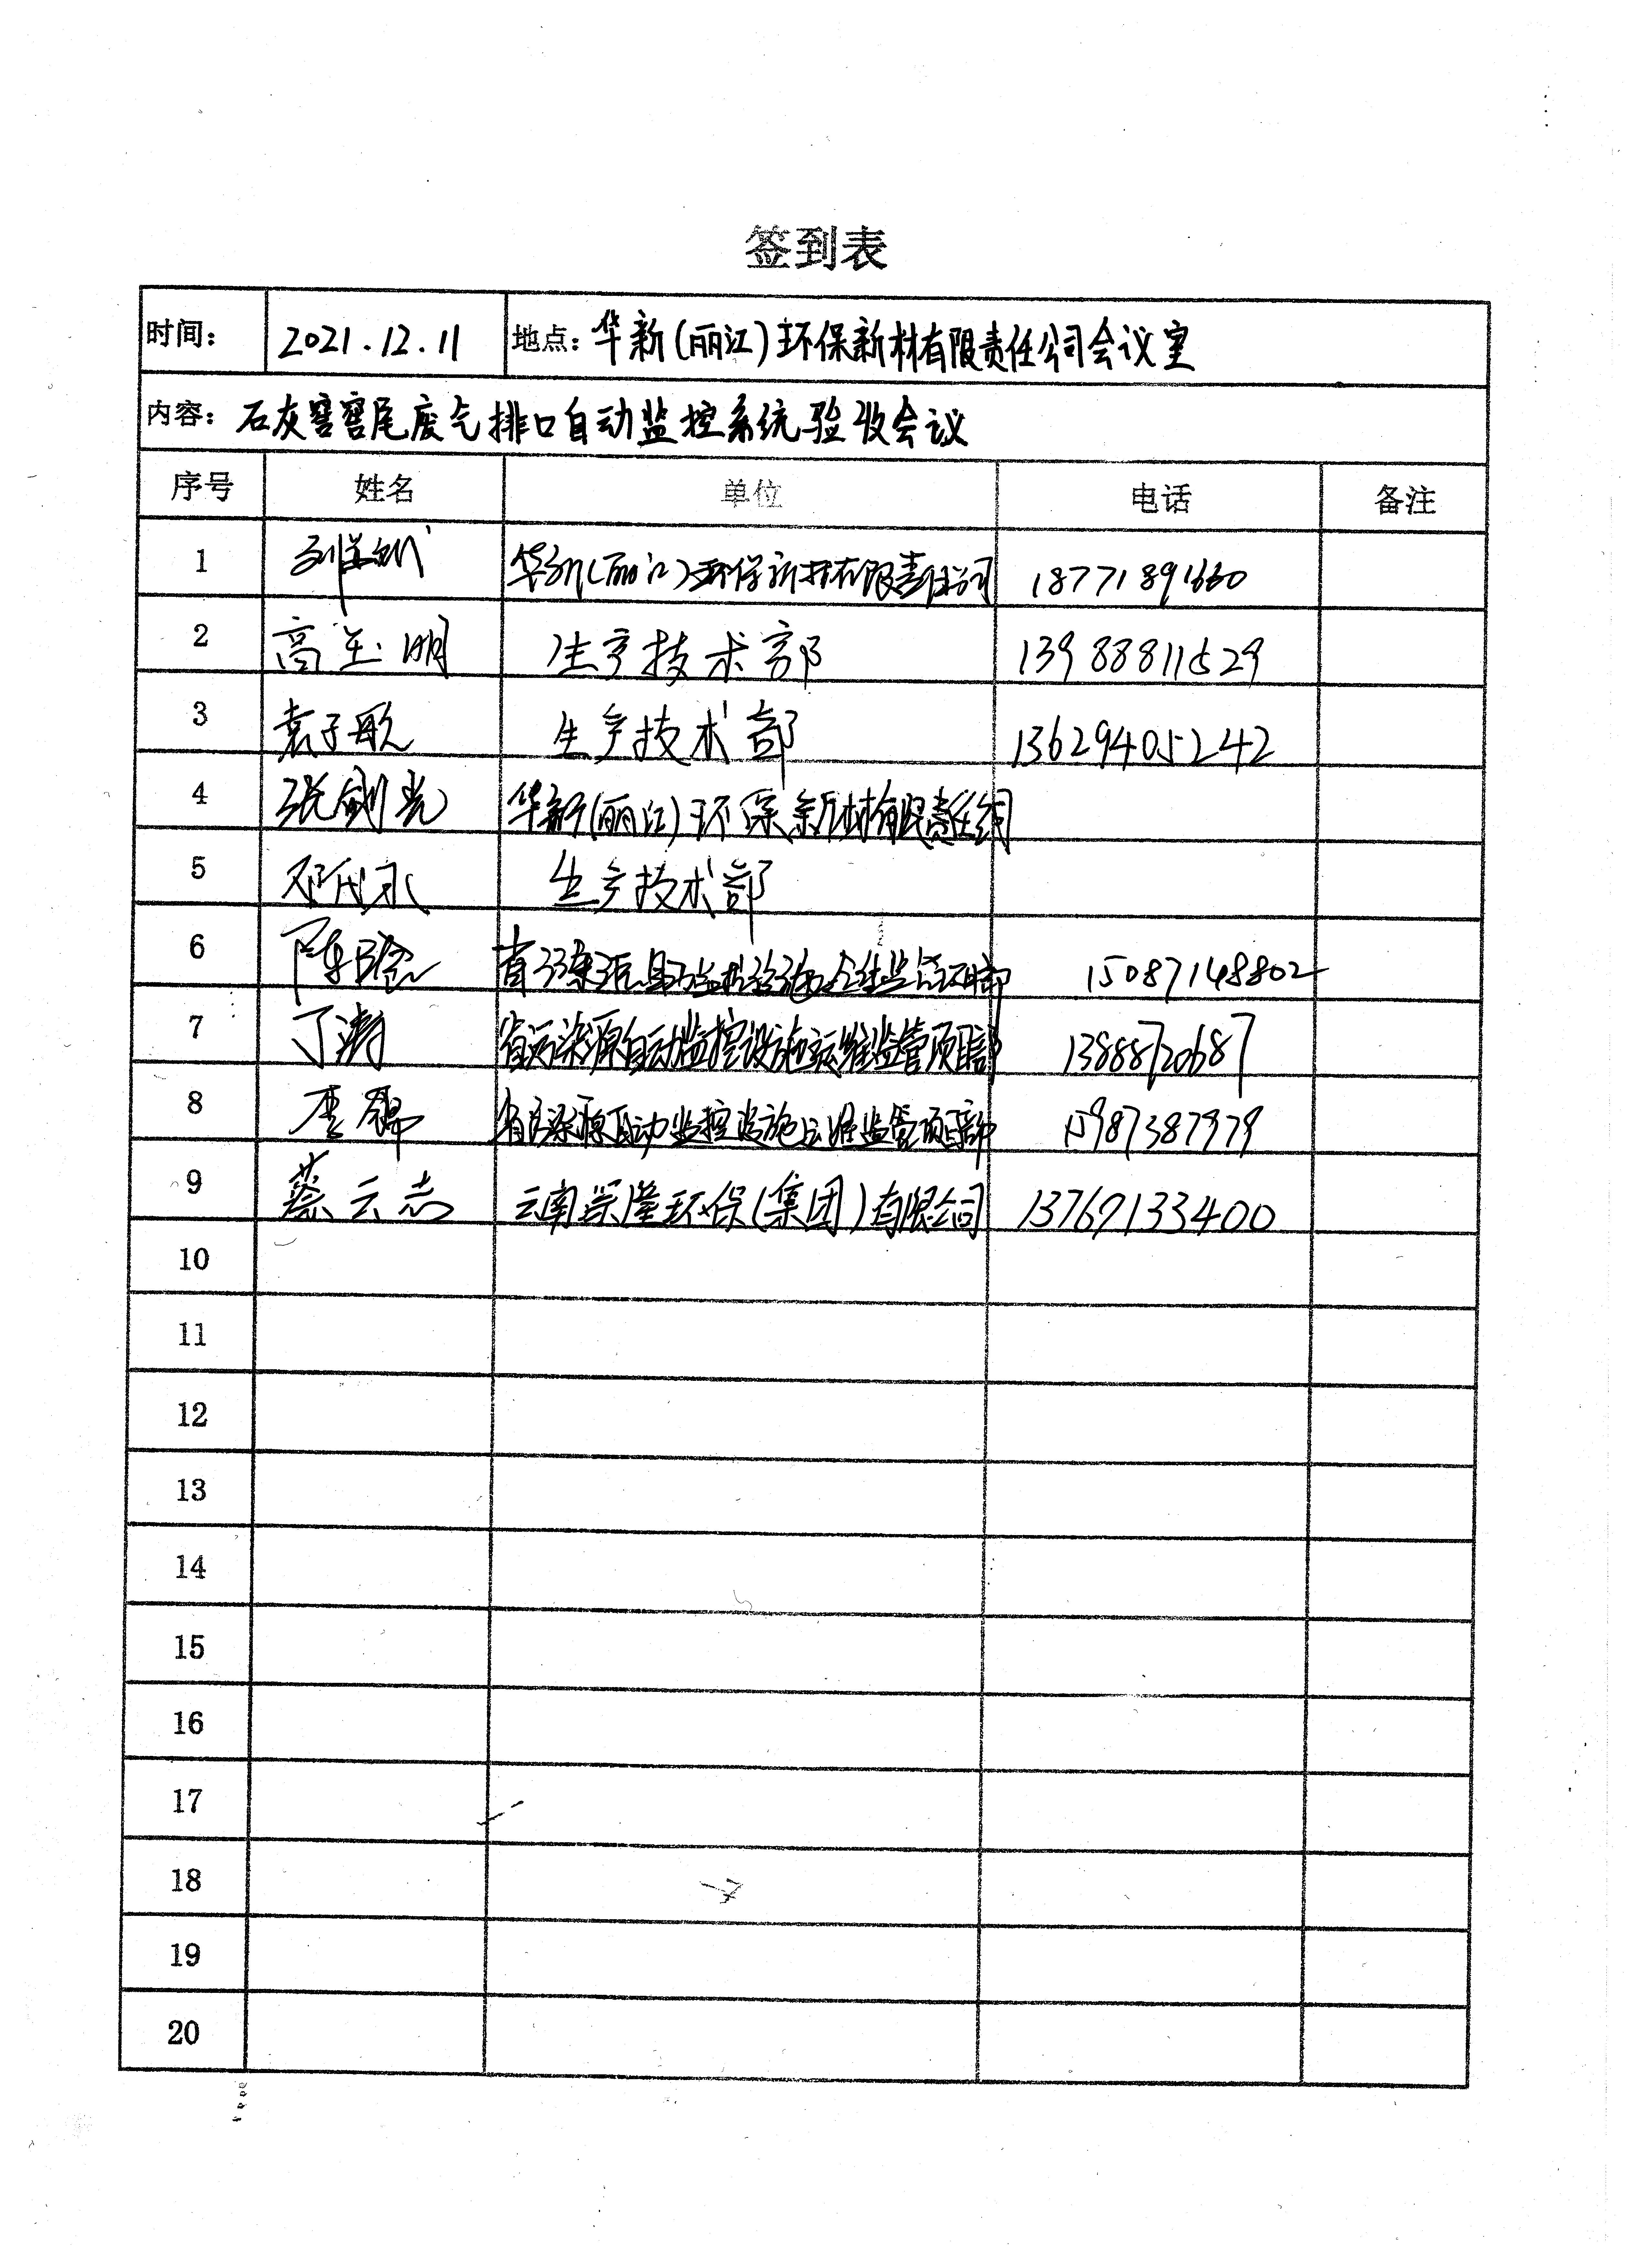 签到表
时间： 2021.12.11 地点：华新(丽江)环保新材有限责任公司会议室
内容：石灰窑窑尾废气排口自动监控系统验收会议
序号 姓名 单位 电话 备注
1 华新(丽江)环保新材有限责任公司 18771891660
2 高至明 生产技术部 13988811529
3 袁子殷 生产技术部 13629405242
4 张剑光 华新(丽江)环保新材有限责任公司
5 邓氏永 生产技术部
6 陈 15087148802
7 丁涛 省污染源自动监控设施运维监管项目部 13888720687
8 李 省污染源自动监控设施运维监管项目部 15987387979
9 蔡云志 云南深隆环保(集团)有限公司 13769133400
10
11
12
13
14
15
16
17
18
19
20